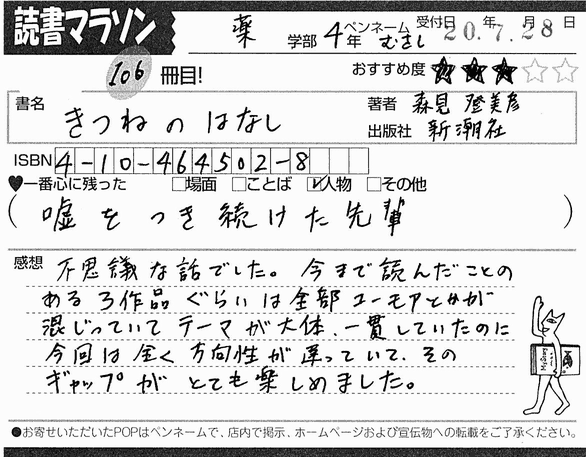 読書マラソン
薬 学部 4年 ペンネーム むさし 受付日 20.年7.月28日
106 冊目!
おすすめ度 ★★★☆☆
書名 きつねのはなし
著者 森見 登美彦
出版社 新潮社
ISBN 4-10-464502-8
♥一番心に残った □場面 □ことば ☑人物 □その他
(嘘をつき続けた先輩)
感想 不思議な話でした。今まで読んだことの
ある3作品ぐらいは全部ユーモアとかが
混じっていてテーマが大体、一貫していたのに
今回は全く方向性が違っていて、その
ギャップがとても楽しめました。
●お寄せいただいたPOPはペンネームで、店内で掲示、ホームページおよび宣伝物への転載をご了承ください。